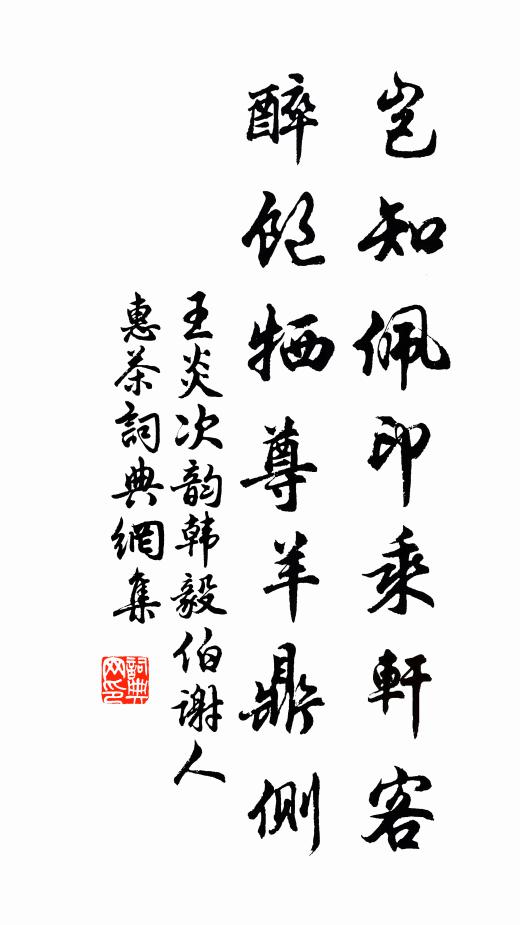 岂知佩印乘軒客
醉飽牺尊羊鼎側
王炎次韵韩毅伯谢人
惠茶詞典網集
詞典网印